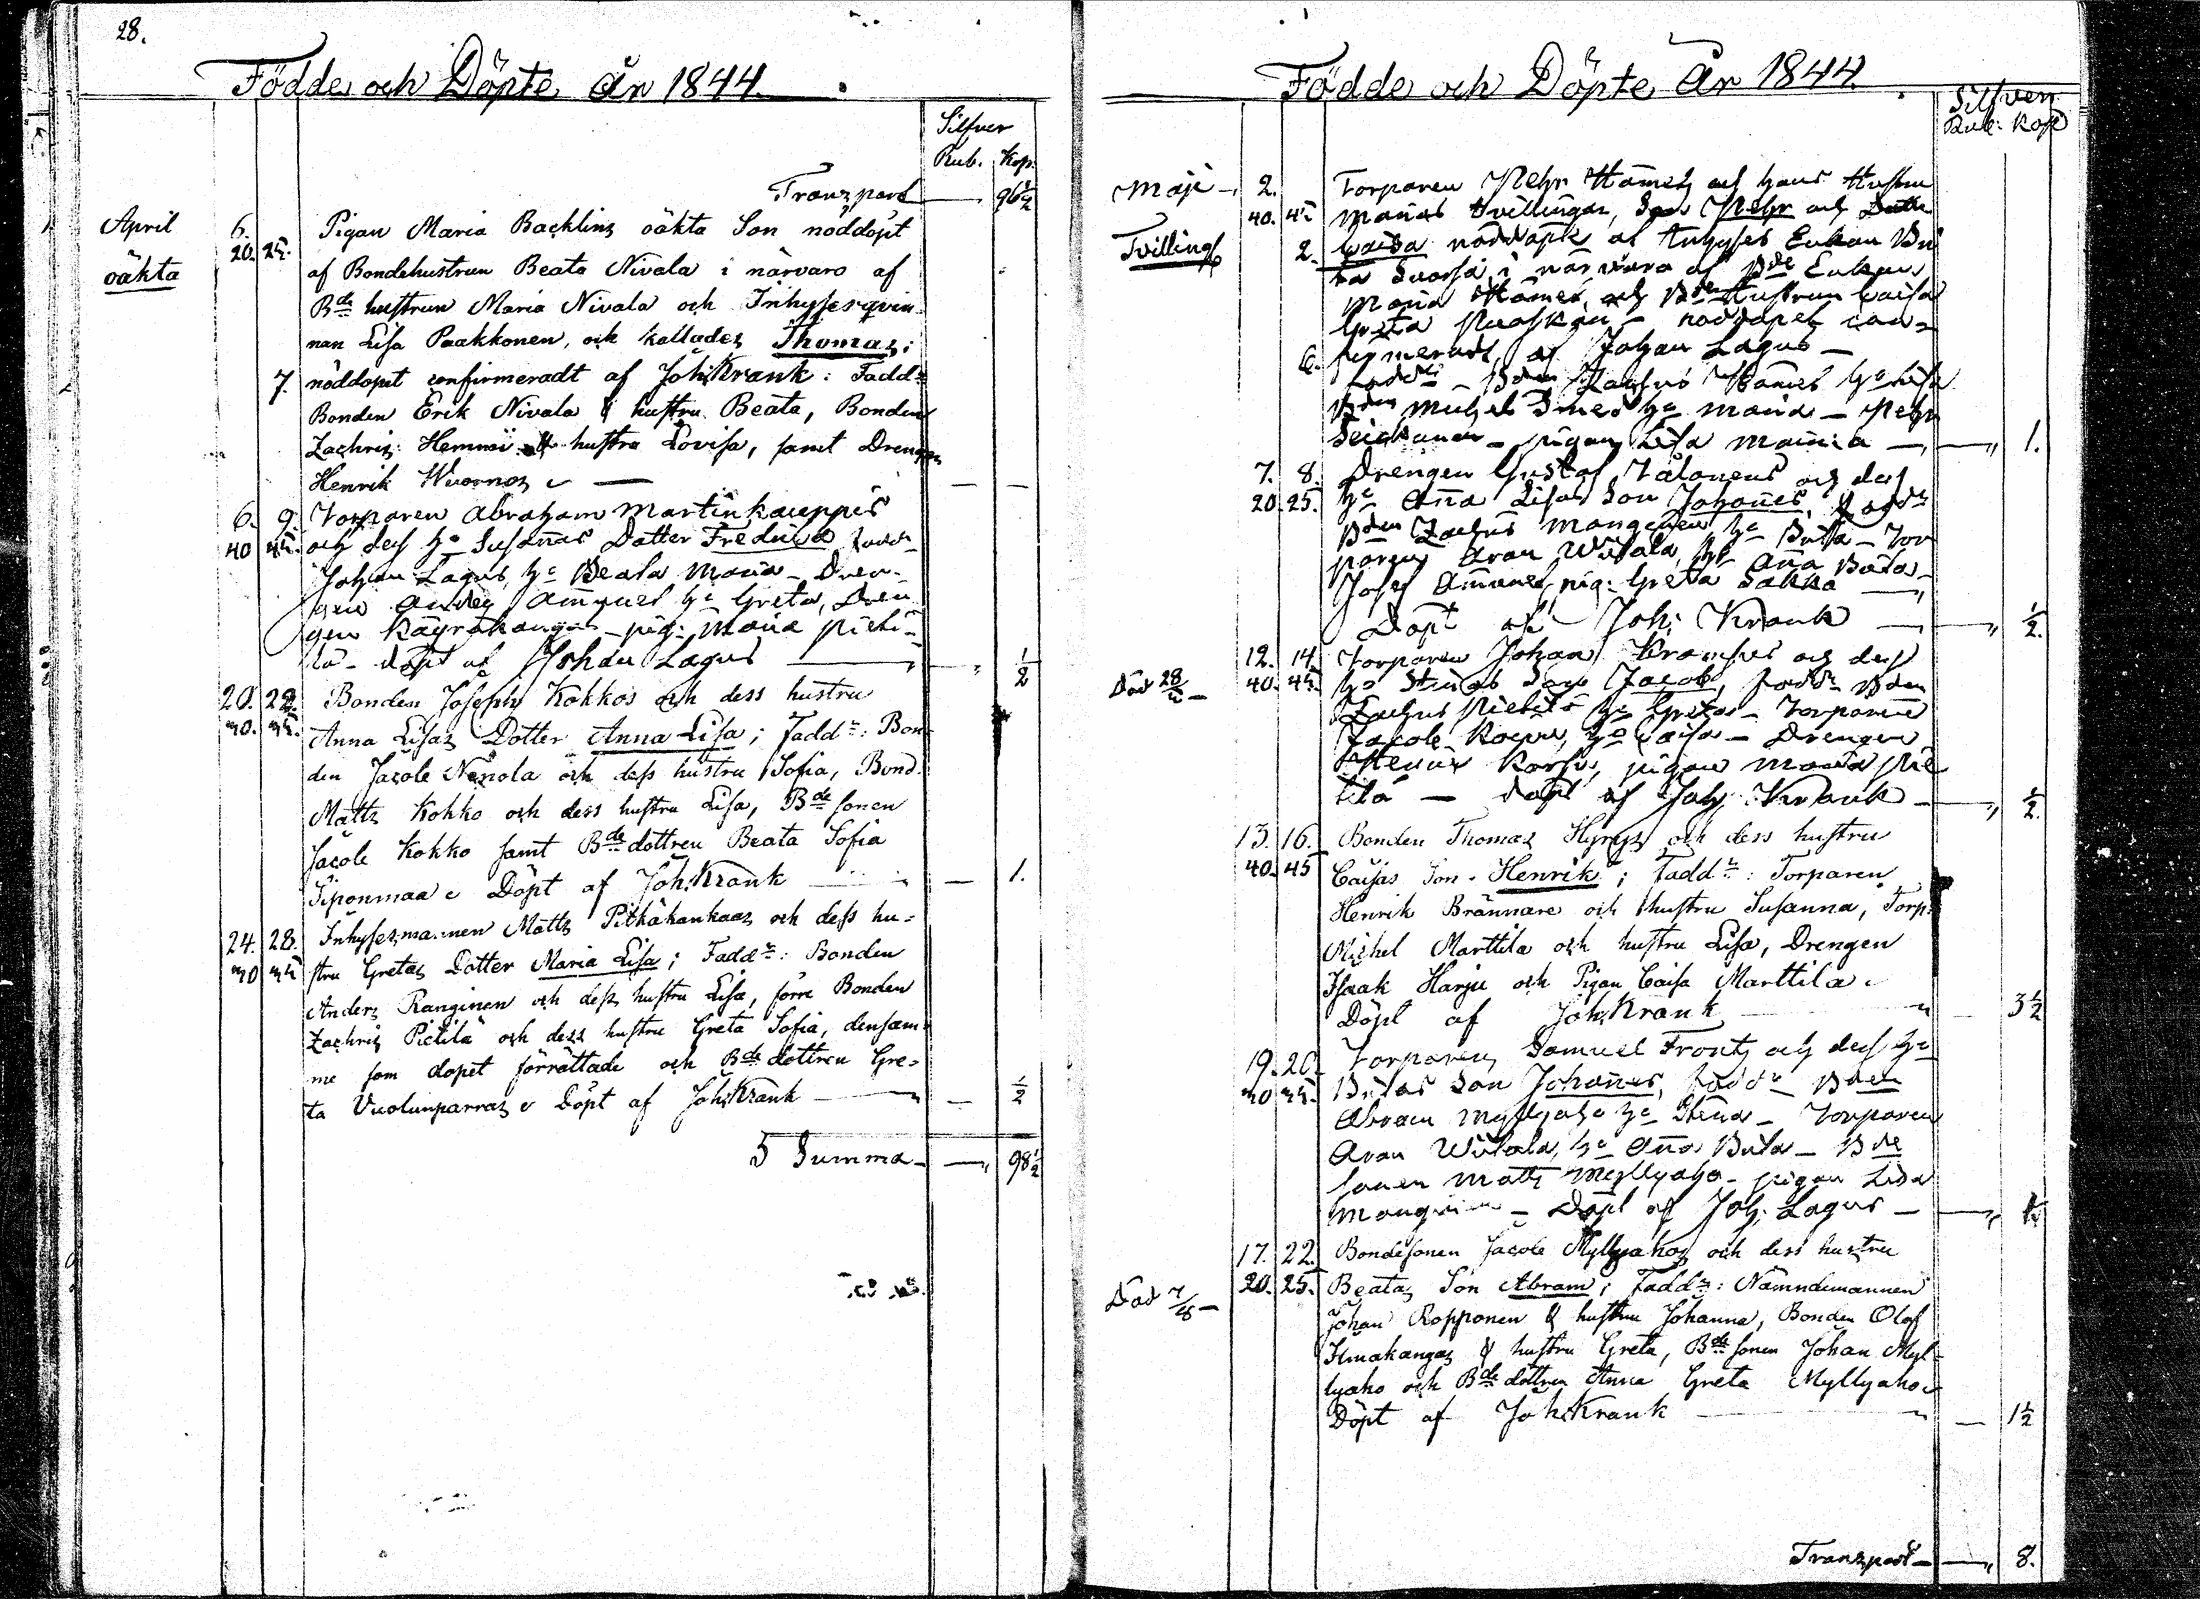 28.
Födde och Döpte År 1844.
Silfver
Rub. Kop.
Transport — 96 1/2
April 6. Pigan Maria Bäcklins oäkta Son nöddöpt
20. 25.
oäkta af Bondehustrun Beata Nivala i närvaro af
Bde hustrun Maria Nivala och Inhysesqvin-
nan Lisa Paakkonen, och kallades Thomas;
7. nöddopet confirmeradt af Joh. Krank: Fadd:r
Bonden Erik Nivala & hustru Beata, Bonden
Zachris Hemmi & hustru Lovisa, samt Drengen
Henrik Wuornos — — —
6. 9. Torparen Abraham Martinkauppis
40 45. och dess h:u Susannas Dotter Fredrica fadd:r
Johan Lagus h:u Beata Maria — Dren-
gen Anders h:u Greta, Dren
gen Käyräkangas — pig: Maria Pieti-
lä — döpt af Johan Lagus — 1/2
20. 22. Bonden Joseph Kokkos och dess hustru
30. 35. Anna Lisas Dotter Anna Lisa; Fadd:r: Bon-
den Jacob Nanola och dess hustru Sofia, Bond.
Matts Kokko och dess hustru Lisa, Bde sonen
Jacob Kokko samt Bde dottren Beata Sofia
Siponmaa Döpt af Joh. Krank — 1.
24. 28. Inhysesmannen Matts Pitkäkankaas och dess hu-
30 35 stru Gretas Dotter Maria Lisa; Fadd:r: Bonden
Anders Ranginen och dess hustru Lisa, förre Bonden
Zachris Pietilä och dess hustru Greta Sofia, densam-
me som dopet förrättade och Bde dottren Gre-
ta Vuolunparras Döpt af Joh. Krank — 1/2
5 Summa — 98 1/2
Födde och Döpte År 1844.
Silfver
Rub: Kop
Maji — 2. Torparen Pehr Hämes och hans Hustru
40. 45 Marias tvillingar, Son Pehr och Dotter
Tvilling 2. Caisa nöddöpte af Inhyses Enkan Bri
ta i närvaro af Bde Enkan
Maria Hämes, och Bde Hustrun Caisa
Greta — nöddopet con-
6. firmeradt af Johan Lagus —
Fadd:r — Bden Zachris Hämes h:u Lisa
Bden Michel h:u Maria — Pehr
— pigan Lisa — 1.
7. 8. Drengen Gustaf Talonens och dess
20. 25. h:u Anna Lisas Son Johannes, Fadd:r
Bden Zachris h:u Brita — Tor
paren Aran Witala, h:u Anna Brita —
Josef pig: Greta Sakko —
Döpt af Joh: Krank — 1/2.
12. 14 Torparen Johan och dess
Död 28/5 — 40. 45. h:u Stinas Son Jacob, fadd:r Bden
Zachris Pietilä h:u Greta — Torparen
Jacob h:u Caisa — Drengen
Henric pigan Maria Pie
tilä — döpt af Joh: Krank — 1/2.
13. 16. Bonden Thomas Hyrys och dess hustru
40. 45 Caisas Son Henrik; Fadd:r: Torparen
Henrik Brännare och hustru Susanna, Torp:
Michel Marttila och hustru Lisa, Drengen
Isaak Harju och Pigan Caisa Marttila
Döpt af Joh. Krank — 3 1/2
19. 20. Torparen Samuel Frontz och dess h:u
30 35. Britas Son Johannes, fadd:r Bden
Abram Myllyaho h:u Stina — Torparen
Aran Witala, h:u Anna Brita — Bde
sonen Matts Myllyaho — pigan Lisa
— Döpt af Joh: Lagus —
17. 22. Bondesonen Jacob Myllyahos och dess hustru
Död 7/8 — 20. 25. Beatas Son Abram; Fadd:r: Nämndemannen
Johan Ropponen & hustru Johanna, Bonden Olof
Ilmakangas & hustru Greta, Bde sonen Johan Myl-
lyaho och Bde dottren Anna Greta Myllyaho
Döpt af Joh. Krank — 1 1/2
Transport — 8.